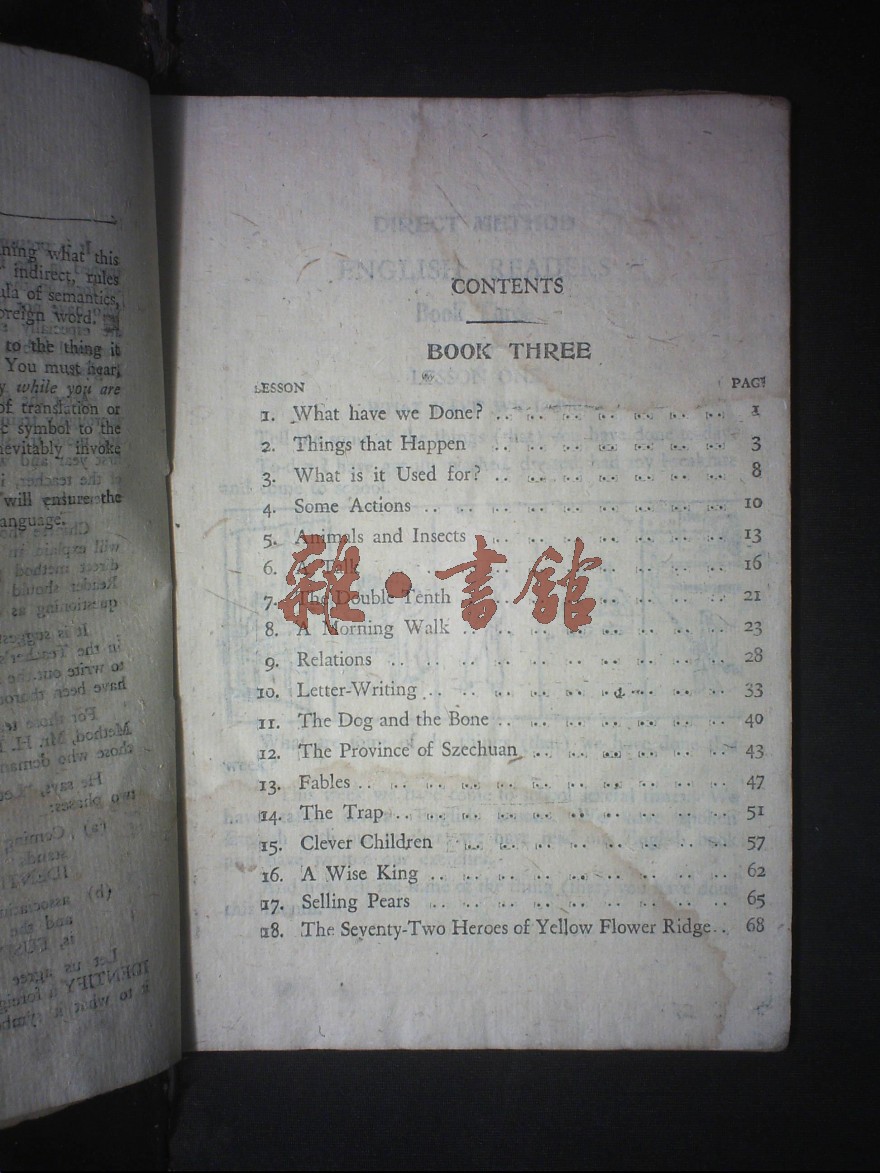 ning what this
indirect, rules
ula of semantics,
oreign word.
to the thing it
You must hear,
while you are
of translation or
symbol to the
nevitably invoke
will ensure the
anguage.
DIRECT METHOD
ENGLISH READERS
CONTENTS
BOOK THREE
LESSON PAGE
1. What have we Done? 1
2. Things that Happen 3
3. What is it Used for? 8
4. Some Actions 10
5. Animals and Insects 13
6. A Talk 16
7. The Double Tenth 21
8. A Morning Walk 23
9. Relations 28
10. Letter-Writing 33
11. The Dog and the Bone 40
12. The Province of Szechuan 43
13. Fables 47
14. The Trap 51
15. Clever Children 57
16. A Wise King 62
17. Selling Pears 65
18. The Seventy-Two Heroes of Yellow Flower Ridge 68
雜·書館